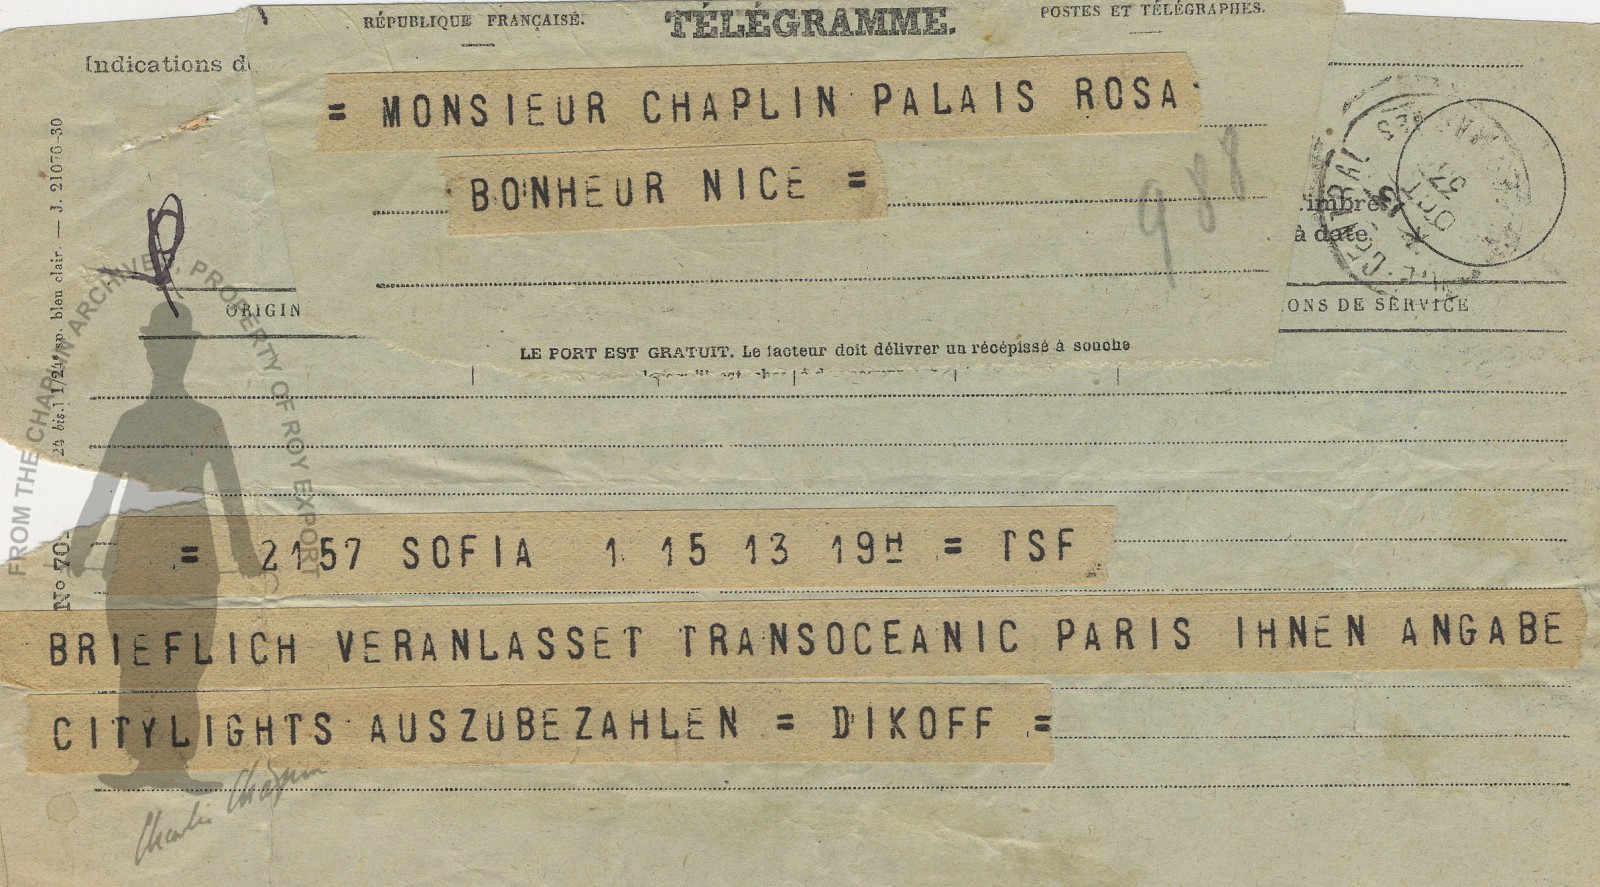 RÉPUBLIQUE FRANÇAISE.
TÉLÉGRAMME.
POSTES ET TÉLÉGRAPHES.
Indications de
= MONSIEUR CHAPLIN PALAIS ROSA
BONHEUR NICE =
988
Timbre
à date.
OCT
ORIGIN
IONS DE SERVICE
LE PORT EST GRATUIT. Le facteur doit délivrer un récépissé à souche
24 bis. 1 1/24e sp. bleu clair. — J. 21070-30
N° 70
= 2157 SOFIA 1 15 13 19H = TSF
BRIEFLICH VERANLASSET TRANSOCEANIC PARIS IHNEN ANGABE
CITYLIGHTS AUSZUBEZAHLEN = DIKOFF =
FROM THE CHAPLIN ARCHIVES, PROPERTY OF ROY EXPORT
Charlie Chaplin